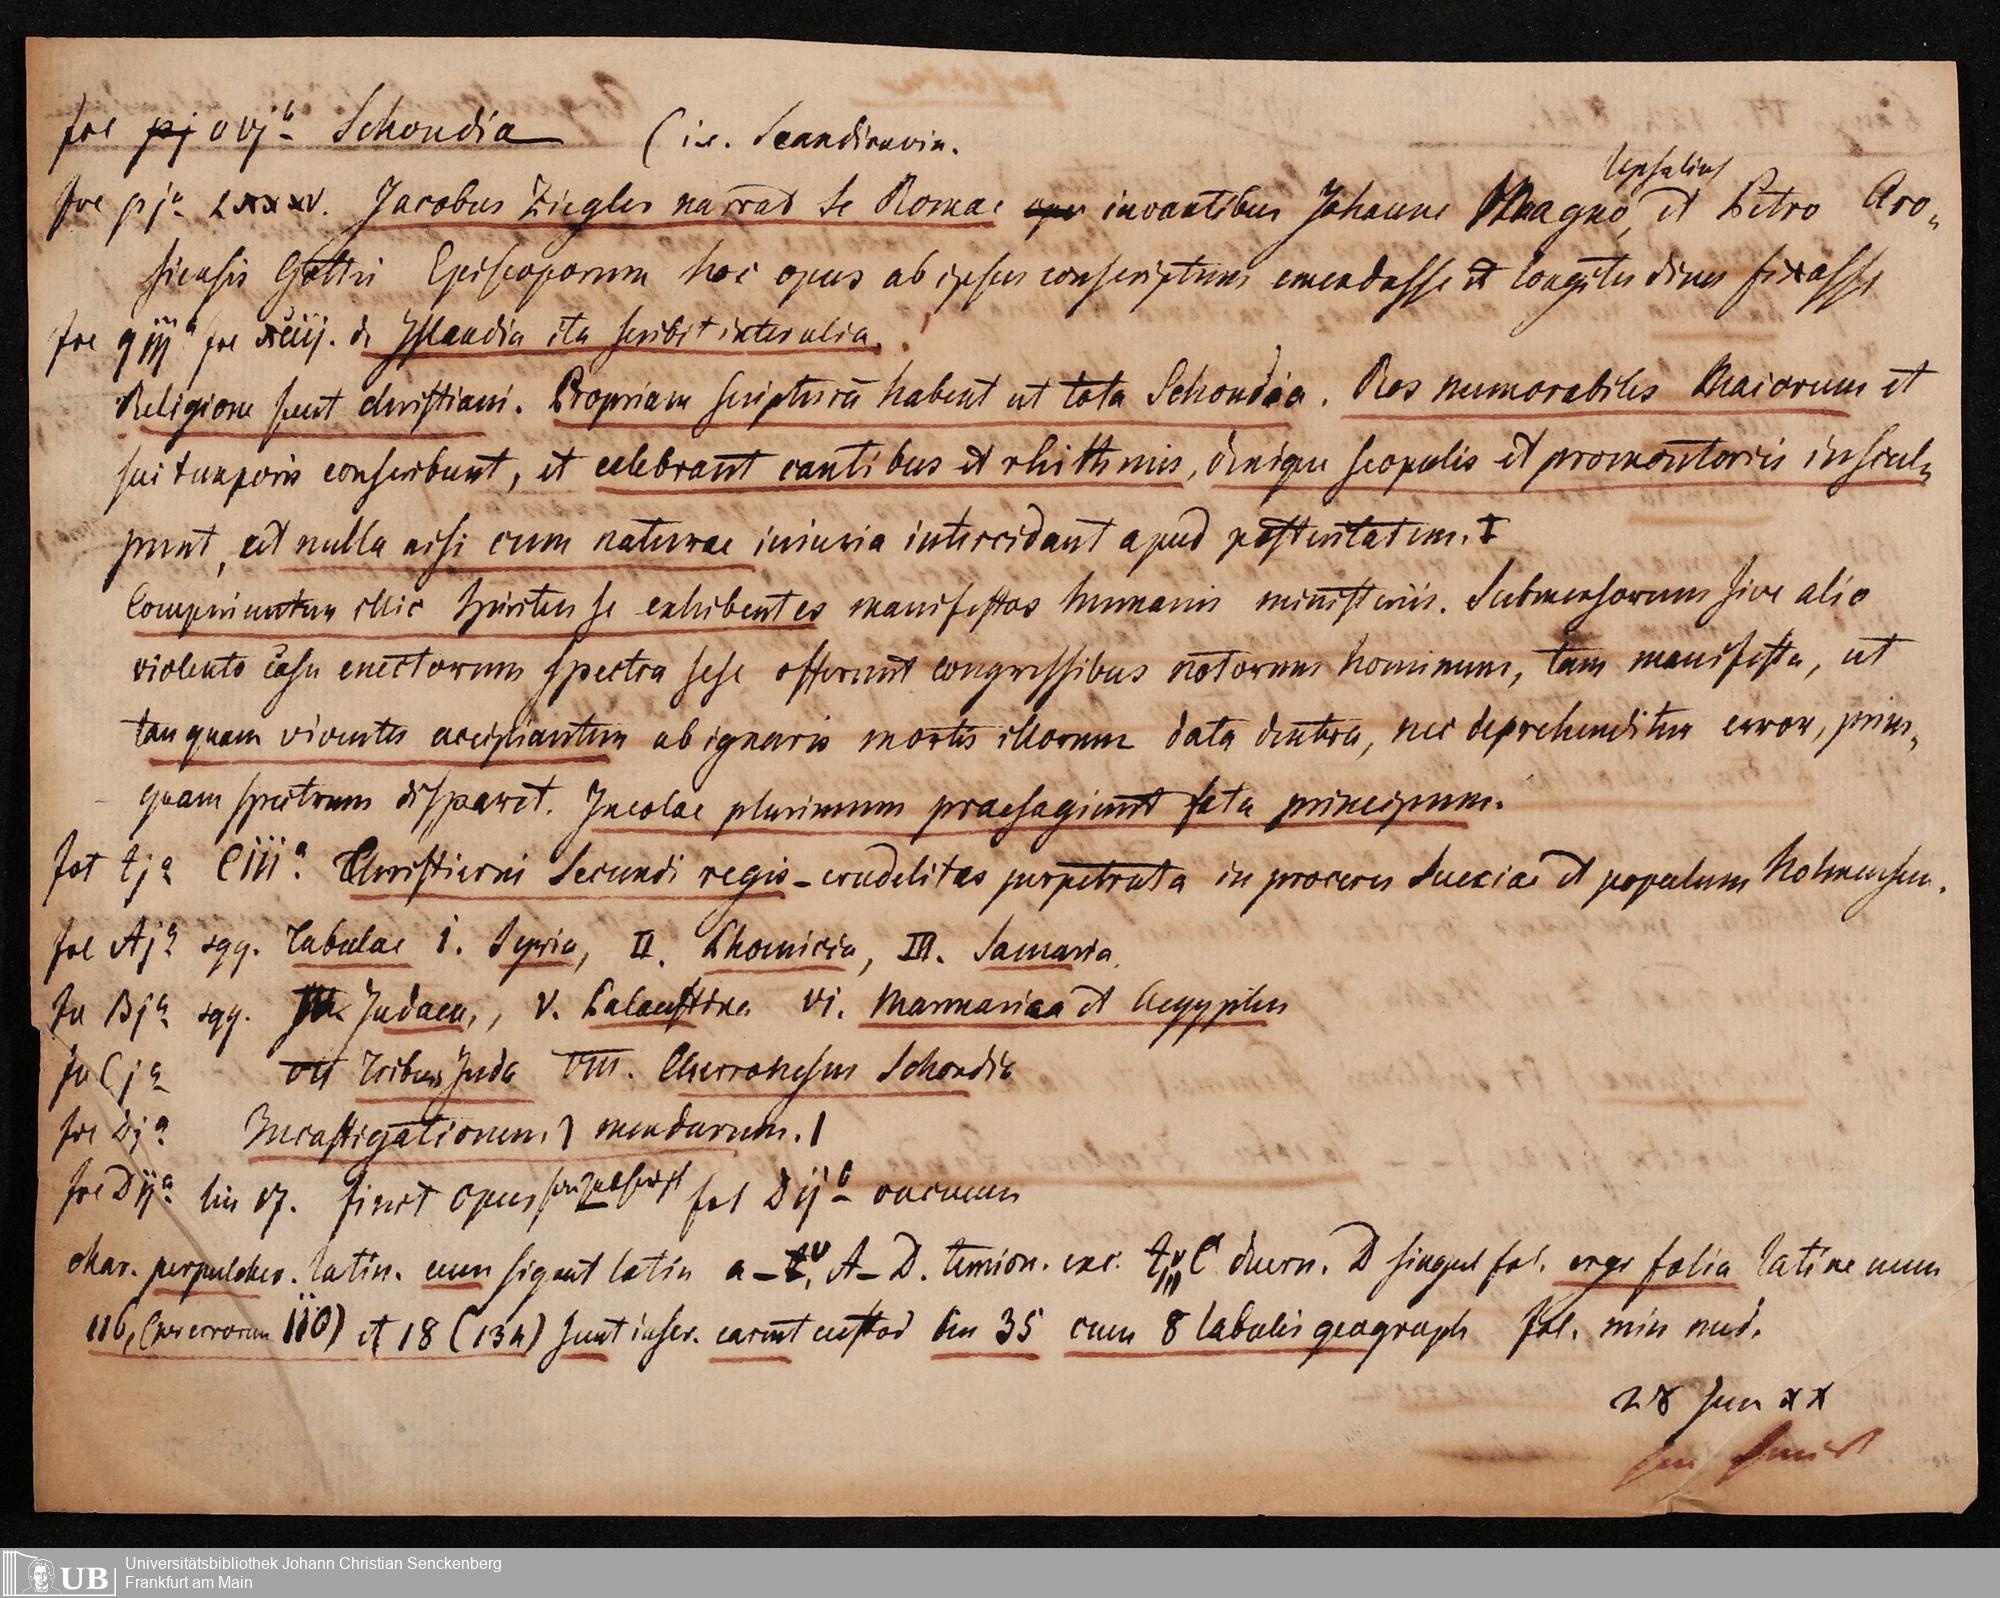 fol pj ovj b Schondia (i.e. Scandinavia.
fol pj a LXXXV. Jacobus Ziegler narrat se Romae iuvantibus Johanne Magno, Upsalius et Petro Aro-
siensis Gothi Episcoporum hoc opus ab ipsis conscriptum emendasse et longitudines fixasse
fol q iij a fol xciij. de Islandia ita scribit inter alia.
Religione sunt christiani. Propriam scripturā habent ut tota Schondia. Res memorabiles Maiorum et
sui temporis conscribunt, et celebrant cantibus et rhithmis, denique scopulis et promontoriis inscul-
punt, ut nulla nisi cum naturae iniuria intercidant apud posteritatem.
Comperiuntur illic spiritus se exhibentes manifestos humanis ministeriis. Submersorum sive alio
violento casu enectorum spectra sese offerunt congressibus notorum hominum, tam manifesta, ut
tanquam viventes accipiantur ab ignaris mortis illorum data dextra, nec deprehenditur error, prius-
quam spectrum disparet. Incolae plurimum praesagiunt fata principum.
fol tj a Ciii a. Christierni Secundi regis - crudelitas perpetrata in proceres Sueciae et populum Holmensem.
fol Aj a sqq. Tabulae I. Syria, II. Phoenicia, III. Samaria.
fol Bj a sqq. IV. Judaea, V. Palaestina VI. Marmarica et Aegyptus
fol Cj a VII Tribus Juda VIII. Cherronesus Schondia
fol Dj a Incastigationem mendarum.
fol Dij a lin 17. finit opus fol Dij b vacuum
char. perpulcher. latin. cum signat latin a-t, A-D. ternion. exc. t C duern. D singul fol. ergo folia latine num
116, (per errorem 110) et 18 (134) sunt inser. carent custod lin 35 cum 8 tabulis geograph fol. min med.
28 Jun XX